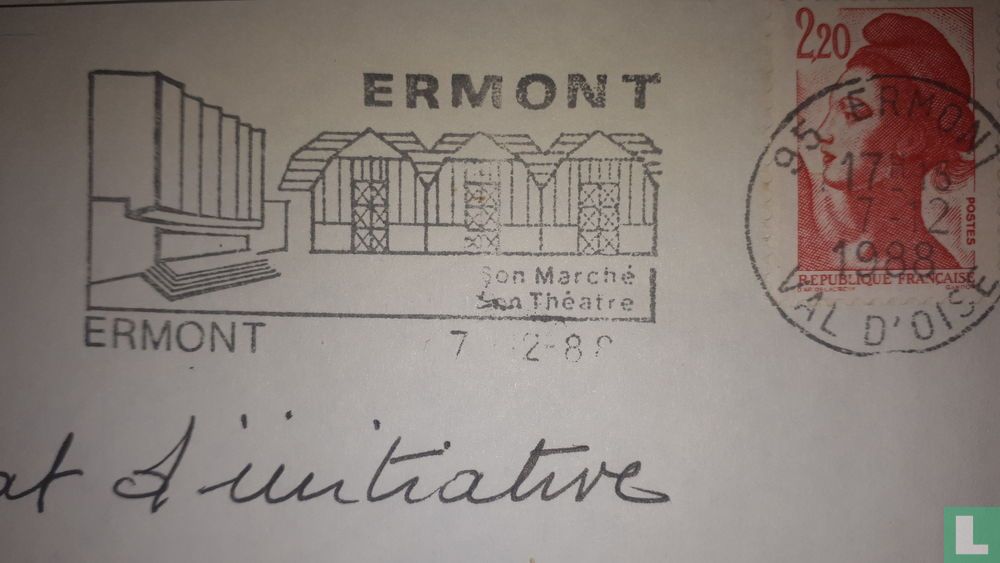 ERMONT
Son Marché
Son Théatre
ERMONT
7 12-88
2,20
95 ERMONT
17H
7-12
1988
VAL D'OISE
POSTES
REPUBLIQUE FRANÇAISE
at d'initiative
L